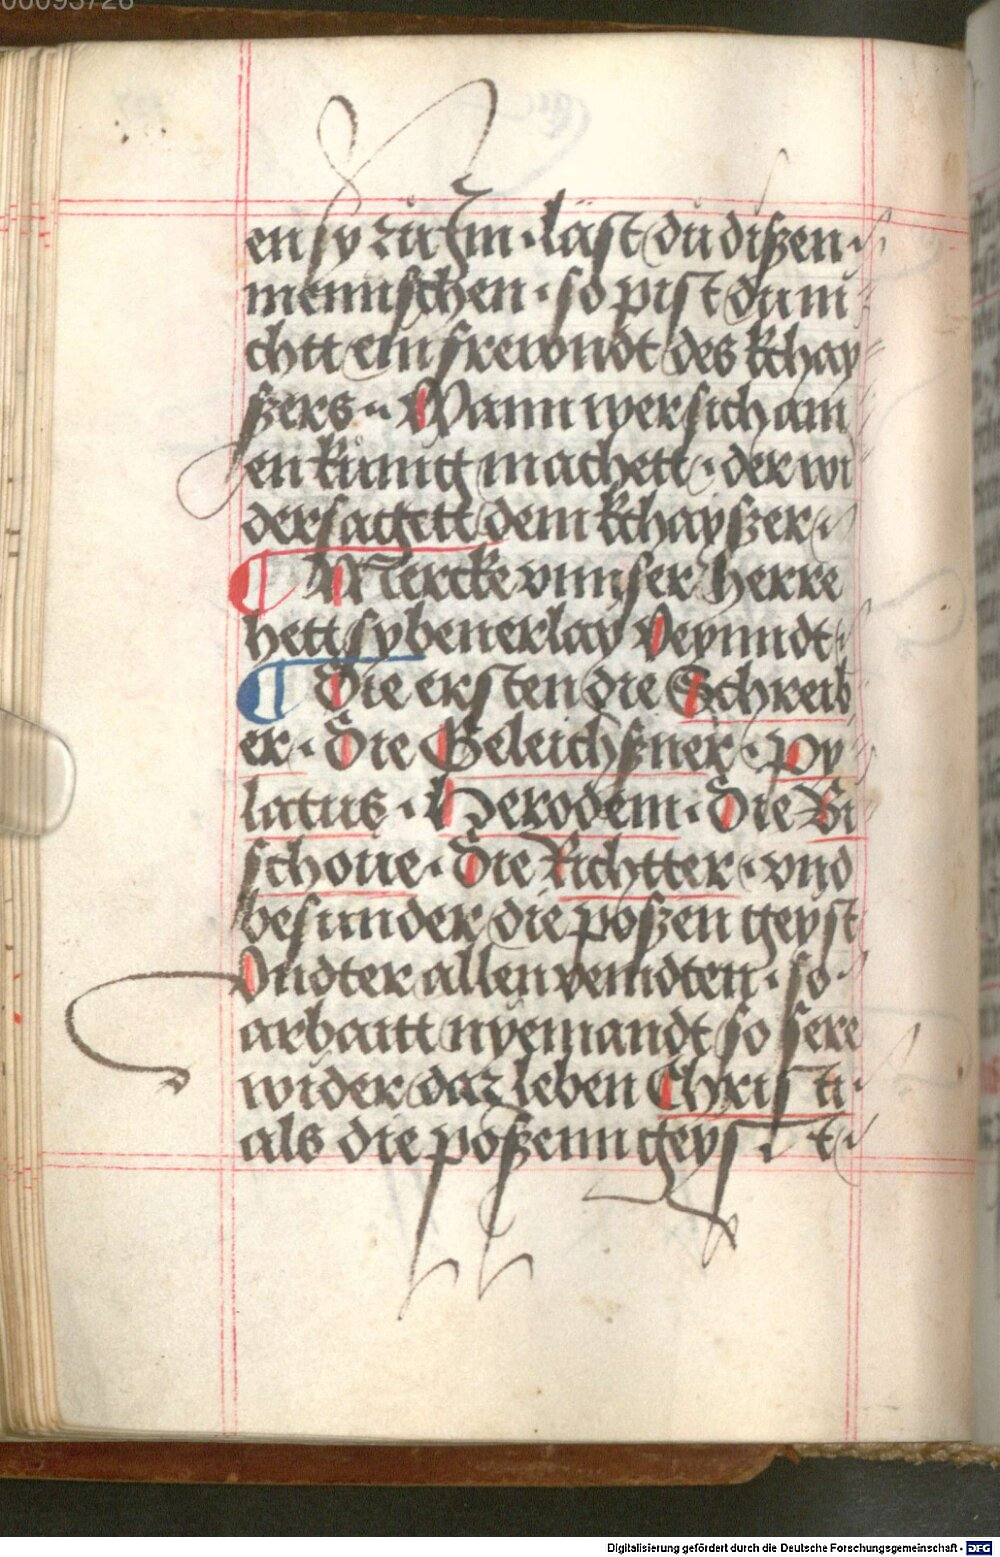 00095728
en sy zu Im · läst du diszen ·
mennschen · so pist du ni
chtt ein frewndt des kthay
szers ·· Wann wer sich ain
en kůnig machett · der wi
dersagett dem kthayszer ·
¶ Mercke vnnser Herre
hett sybenerlay Veynndt ·
¶ Die ersten die Schreib
er · Die Geleichszner · Py
latus · Herodem · Die Bi
schoue · Die Richtter · vnd
besunder die poszen geyst
Vndter allen veindten · so ·
arbaitt nyemandt so sere
wider daz leben Christi ·
als die poszenn geyst ·
Digitalisierung gefördert durch die Deutsche Forschungsgemeinschaft - DFG